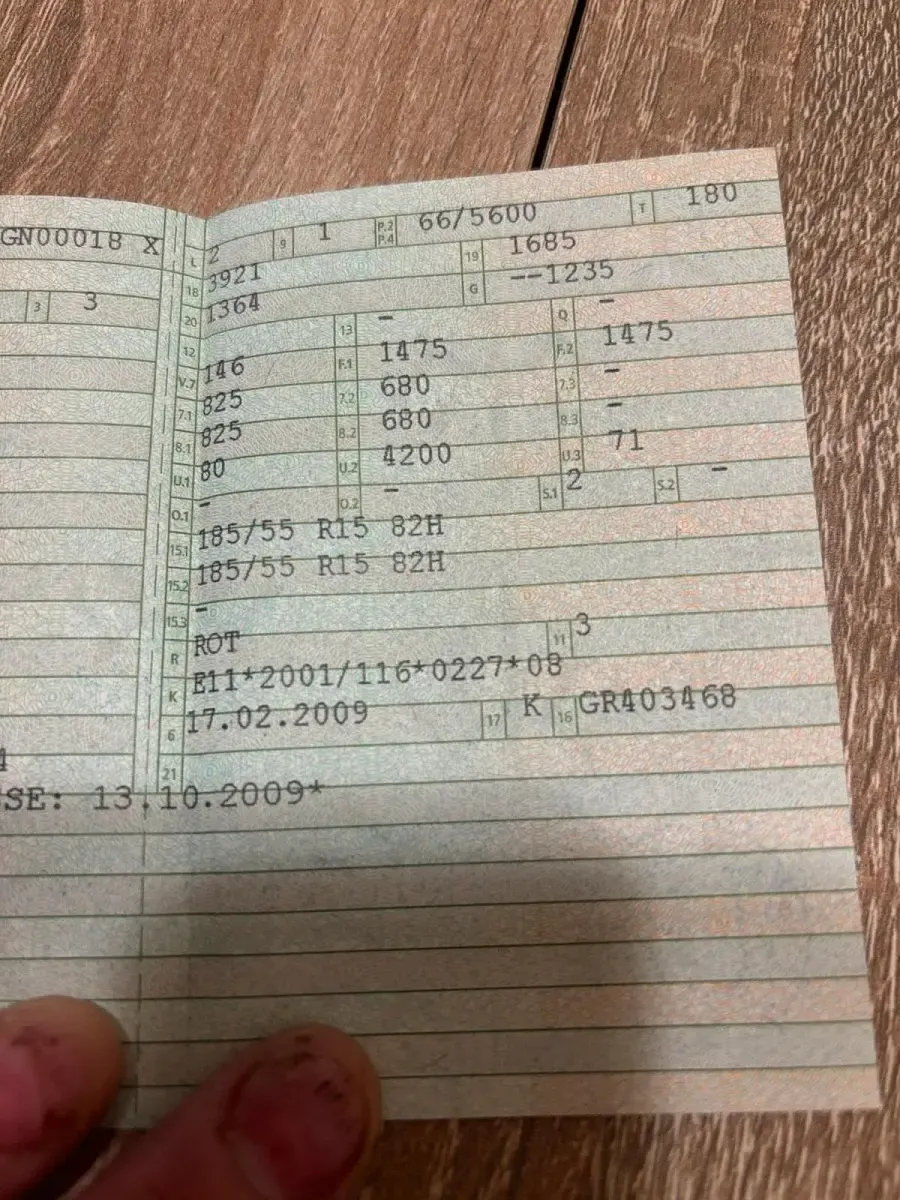 GN00018 X L 2 9 1 P.2 P.4 66/5600 T 180
18 3921 19 1685
3 3 20 1364 G --1235
12 13 - Q -
V.7 146 F.1 1475 F.2 1475
7.1 825 7.2 680 7.3 -
8.1 825 8.2 680 8.3 -
U.1 80 U.2 4200 U.3 71
O.1 - O.2 - S.1 2 S.2 -
15.1 185/55 R15 82H
15.2 185/55 R15 82H
15.3 -
R ROT 11 3
K E11*2001/116*0227*08
6 17.02.2009 17 K 16 GR403468
21
SE: 13.10.2009*